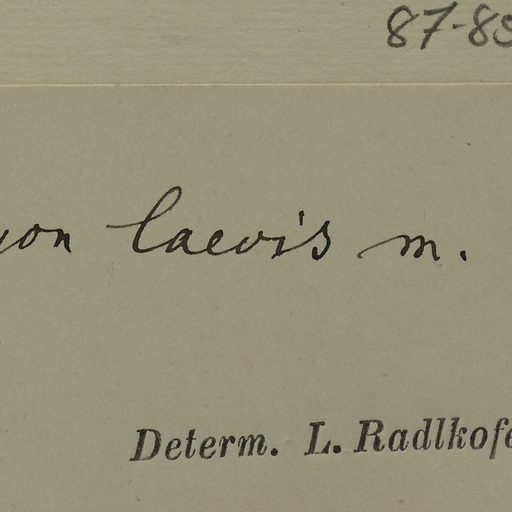 87-89
on laevis m.
Determ. L. Radlkofe